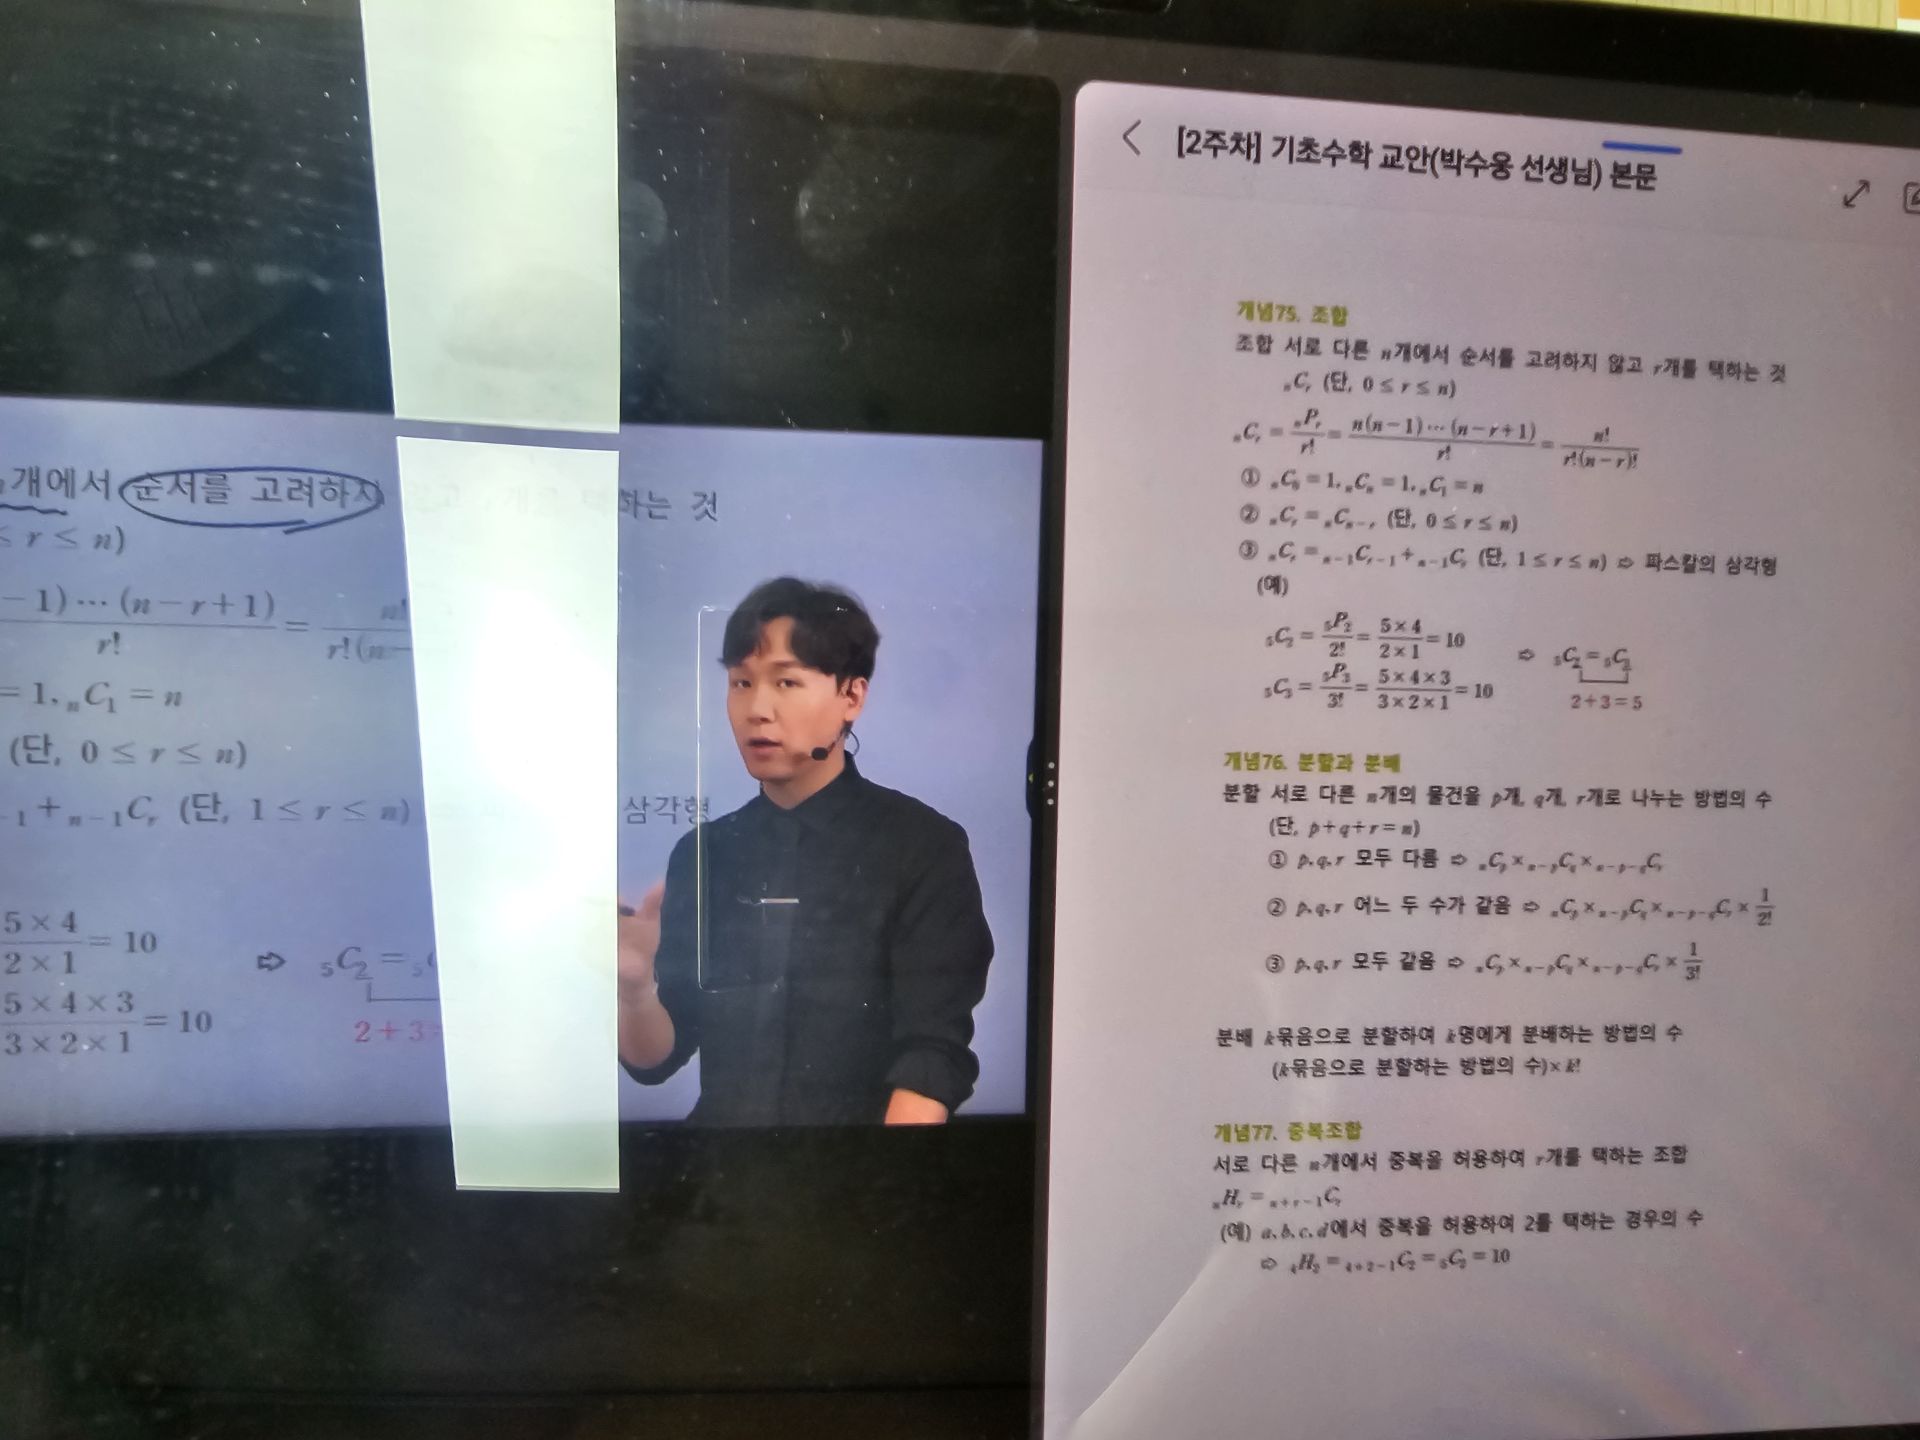 개에서 순서를 고려하지
하는 것
≤ r ≤ n)
−1)⋯(n−r+1)/r! = n!/r!(n−
= 1, ₙC₁ = n
(단, 0 ≤ r ≤ n)
₋₁ + ₙ₋₁Cᵣ (단, 1 ≤ r ≤ n)
삼각형
5×4/2×1 = 10 ⇨ ₅C₂ = ₅
5×4×3/3×2×1 = 10
2+3
[2주차] 기초수학 교안(박수웅 선생님) 본문
개념75. 조합
조합 서로 다른 n개에서 순서를 고려하지 않고 r개를 택하는 것
ₙCᵣ (단, 0 ≤ r ≤ n)
ₙCᵣ = ₙPᵣ/r! = n(n−1)⋯(n−r+1)/r! = n!/r!(n−r)!
① ₙC₀ = 1, ₙCₙ = 1, ₙC₁ = n
② ₙCᵣ = ₙCₙ₋ᵣ (단, 0 ≤ r ≤ n)
③ ₙCᵣ = ₙ₋₁Cᵣ₋₁ + ₙ₋₁Cᵣ (단, 1 ≤ r ≤ n) ⇨ 파스칼의 삼각형
(예)
₅C₂ = ₅P₂/2! = 5×4/2×1 = 10 ⇨ ₅C₂ = ₅C₃
₅C₃ = ₅P₃/3! = 5×4×3/3×2×1 = 10
2+3=5
개념76. 분할과 분배
분할 서로 다른 n개의 물건을 p개, q개, r개로 나누는 방법의 수
(단, p+q+r=n)
① p, q, r 모두 다름 ⇨ ₙCₚ × ₙ₋ₚC_q × ₙ₋ₚ₋_qCᵣ
② p, q, r 어느 두 수가 같음 ⇨ ₙCₚ × ₙ₋ₚC_q × ₙ₋ₚ₋_qCᵣ × 1/2!
③ p, q, r 모두 같음 ⇨ ₙCₚ × ₙ₋ₚC_q × ₙ₋ₚ₋_qCᵣ × 1/3!
분배 k묶음으로 분할하여 k명에게 분배하는 방법의 수
(k묶음으로 분할하는 방법의 수)×k!
개념77. 중복조합
서로 다른 n개에서 중복을 허용하여 r개를 택하는 조합
ₙHᵣ = ₙ₊ᵣ₋₁Cᵣ
(예) a, b, c, d에서 중복을 허용하여 2를 택하는 경우의 수
⇨ ₄H₂ = ₄₊₂₋₁C₂ = ₅C₂ = 10